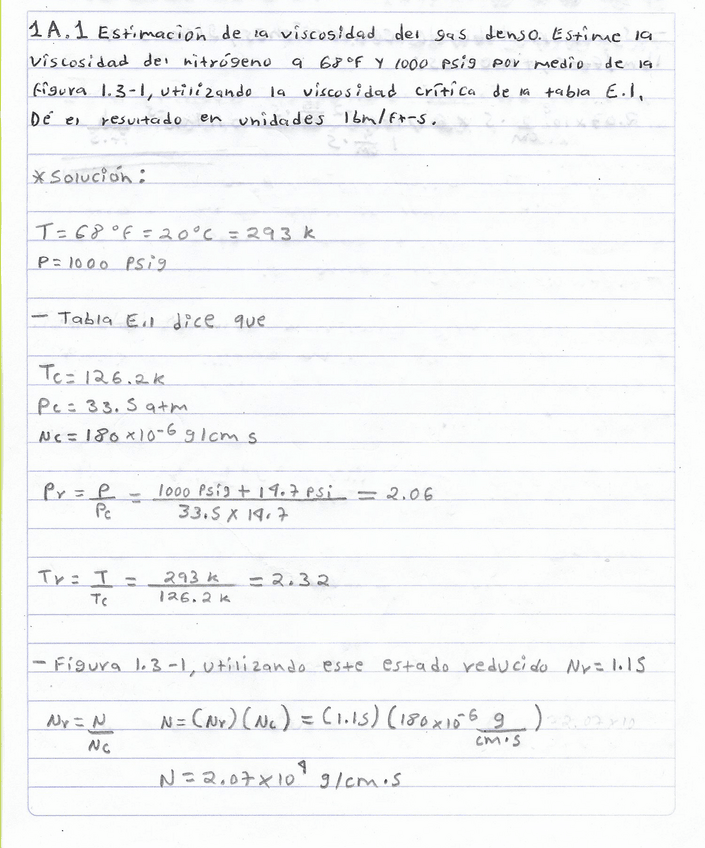 1A.1 Estimación de la viscosidad del gas denso. Estime la
viscosidad del nitrógeno a 68°F y 1000 psig por medio de la
figura 1.3-1, utilizando la viscosidad crítica de la tabla E.1,
Dé el resultado en unidades lbm/ft-s.
* Solución:
T = 68 °F = 20°C = 293 k
P = 1000 Psig
- Tabla E.1 dice que
Tc = 126.2 k
Pc = 33.5 atm
Nc = 180 x 10^-6 g/cm s
Pr = P/Pc = (1000 Psig + 14.7 psi)/(33.5 x 14.7) = 2.06
Tr = T/Tc = 293 k/126.2 k = 2.32
- Figura 1.3-1, utilizando este estado reducido Nr = 1.15
Nr = N/Nc N = (Nr)(Nc) = (1.15)(180x10^-6 g/cm·s)
N = 2.07 x 10^4 g/cm·s